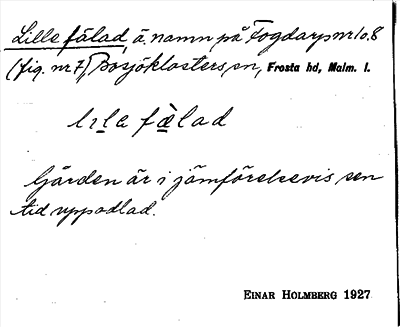 Lille fälad, ä. namn på Fogdarp nr 1 o. 8
(fig. nr 7) Bosjöklosters sn, Frosta hd, Malm. l.
lịla fälad
Gården är i jämförelsevis sen
tid uppodlad.
EINAR HOLMBERG 1927